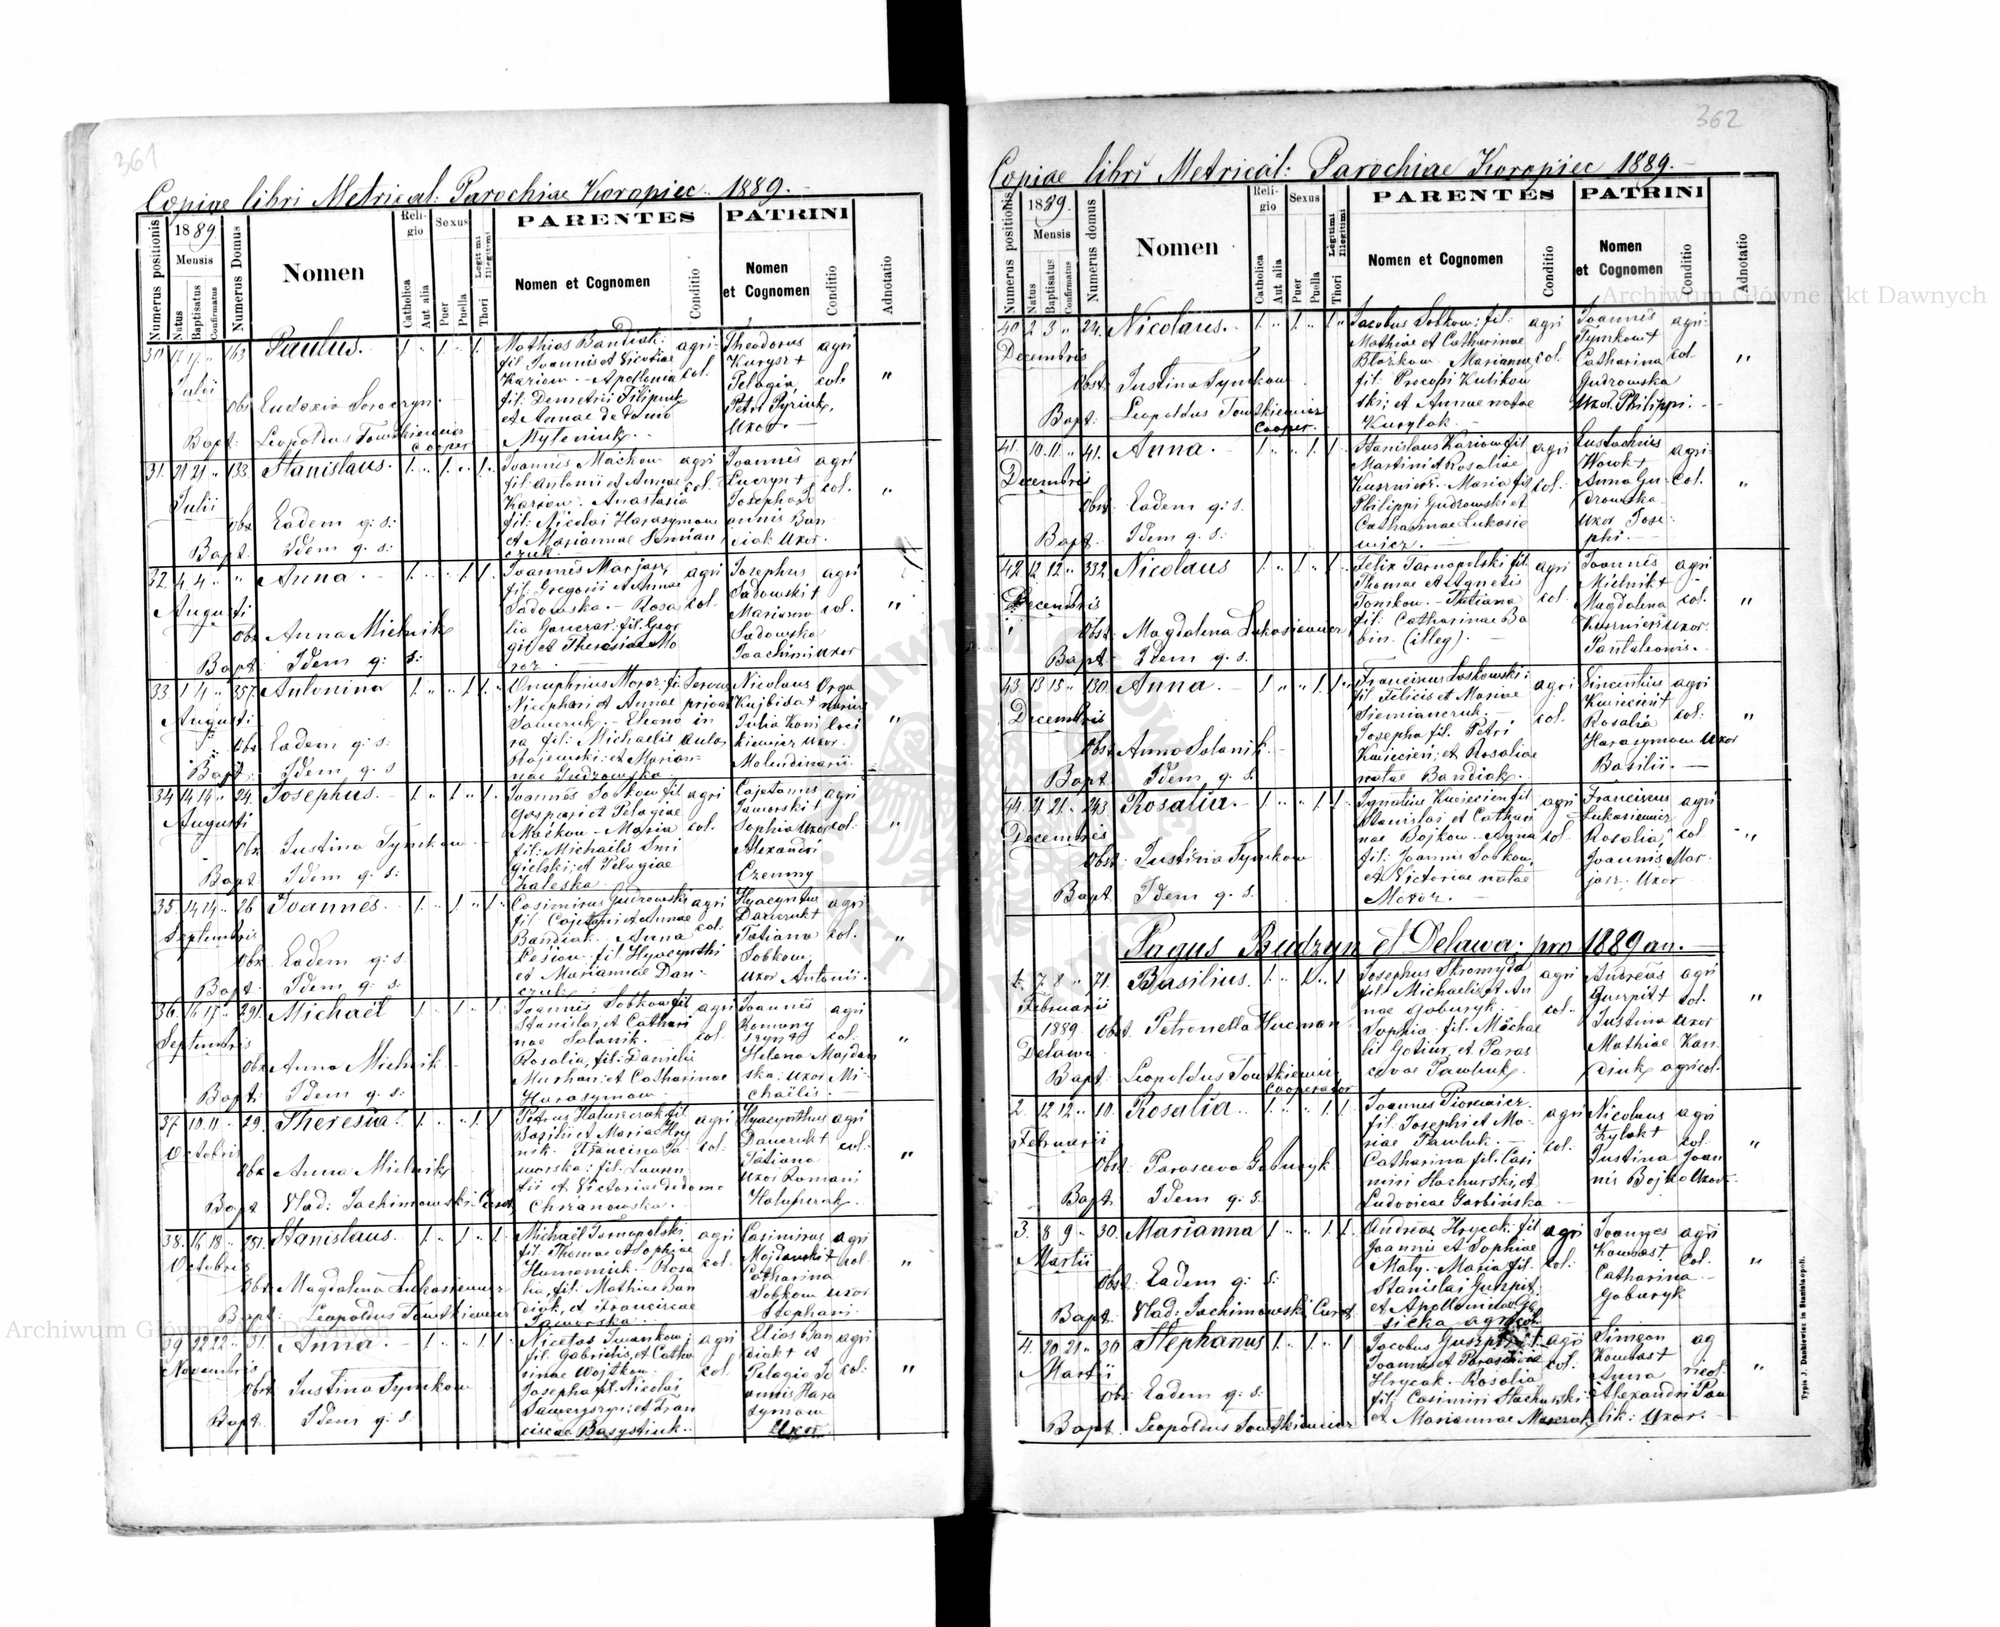 361
Copiae libri Metrical: Parochiae Koropiec 1889.
Numerus positionis
1889
Mensis
Natus
Baptisatus
Confirmatus
Numerus Domus
Nomen
Religio
Catholica
Aut alia
Sexus
Puer
Puella
Thori
Legitimi
Illegitimi
PARENTES
Nomen et Cognomen
Conditio
PATRINI
Nomen
et Cognomen
Conditio
Adnotatio
30. 17. 17. " 163. Paulus. 1. " 1. " 1.
Julii
Obs Eudoxia Soroczyn.
Bapt: Leopoldus Tomtkiewicz
Cooper
Mathias Bandiak:
fil: Joannis et
Kariow. Apollonia
fil: Demetrii Filipiuk
et Annae de domo
Myleniuk.
agri
col.
Theodorus
Kurysz +
Pelagia,
Petri Pyriuk,
Uxor.
agri
col.
"
31. 21 21 " 133. Stanislaus. 1. " 1. " 1.
Julii
Obs Eadem q: s:
Bapt. Idem q: s:
Joannes Maćkow
fil: Antonii et Annae
Kariow. Anastasia
fil: Nicolai Harasymow
et Mariannae Simian
czuk.
agri
col.
Joannes
Lucyn +
Josepha Jo
annis Ban
diak Uxor.
agri
col.
"
32. 4 4. " " Anna. 1. " " 1. 1.
Augusti
Obs Anna Mielnik
Bapt: Idem q: s:
Joannes Marjasz
fil: Gregorii et Annae
Sadowska. Rosa
lia Ganczar. fil: Geor
gii et Theresiae Mo
roz.
agri
col.
Josephus
Sadowski +
Marianna
Sadowska
Joachimi uxor
agri
col.
"
33. 1 4. " 357. Antonina 1. " " 1. 1.
Augusti
Obs Eadem q: s:
Bapt. Idem q: s
Onuphrius Moroz fil
Nicephori et Annae
Sawczuk. Eleono
ra fil: Michaelis
Stajewski et Marian
nae Gudrowska.
Nicolaus
Kujbida +
Julia Kani
kiewicz uxor
Molendinarii.
Orga
narius
loci
"
34. 14 14 " 24. Josephus. 1. " 1. " 1.
Augusti
Obs Justina Tymkow
Bapt: Idem q: s:
Joannes Sobkow fil
Gaspari et Pelagiae
Maćkow Maria
fil: Michaelis Smi
gielski; et Pelagiae
Zaleska.
agri
col.
Cajetanus
Jaworski +
Sophia Uxor
Alexandri
Czemny
agri
col.
"
35. 14 14. " 26. Joannes. 1. " 1. " 1.
Septembris
Obs. Eadem q: s.
Bapt. Idem q: s:
Casimirus Gudrowski
fil: Cajetani et Annae
Bandiak. Anna
Desiow. fil. Hyacynthi
et Mariannae Dan
czuk.
agri
col:
Hyacyntus
Danczuk +
Tatiana
Sobkow,
Uxor Antonii.
agri
col.
"
36. 16. 17. " 291. Michaël 1. " 1. " 1.
Septembris
Obs Anna Mielnik
Bapt: Idem q: s:
Joannes Sobkow fil
Stanislai et Cathari
nae Solanik.
Rosalia, fil: Danielis
Murhan; et Catharinae
Harasymow.
agri
col.
Joannes
Romany
szyn +
Helena Majdan
ska; uxor Mi
chaëlis.
agri
col.
"
37. 10. 11. " 29. Theresia. 1. " " 1. 1.
Octobris
Obs Anna Mielnik
Bapt Vlad: Jachimowski Curat.
Petrus Haluszczak fil
Basilii et Mariae Hry
nik. Francina Ja
worska: fil. Lauren
tii et Victoriae de domo
Chrzanowska.
agri
col:
Hyacynthus
Danczuk +
Tatiana
uxor Romani
Haluszczak.
agri
col:
"
38. 16 18 " 281. Stanislaus. 1. " 1. " 1.
Octobris
Obs: Magdalena Lukasiewicz
Bapt: Leopoldus Tomtkiewicz
Michaël Tarnopolski
fil: Thomae et Sophiae
Humeniuk. Rosa
lia, fil. Mathiae Ban
diak, et Franciscae
Jaworska.
agri
col.
Casimirus
Majdanski +
Catharina
Sobkow uxor
Stephani.
agri
col.
"
39. 22 22. " 31. Anna. 1. " " 1. 1.
Novembris
Obst Justina Tymkow
Bapt. Idem q: s.
Nicetas Iwankow;
fil. Gabrielis, et Catha
rinae Wojtkow
Josepha fil. Nicolai
Saweryszyn; et Fran
ciscae Basystiuk.
agri
col.
Elias Ban
diak + et
Pelagia Jo
annis Hara
symow
Uxor
agri
col:
"
362
Copiae libri Metricál: Parochiae Koropiec 1889.
Numerus positionis
1889.
Mensis
Natus
Baptisatus
Confirmatus
Numerus domus
Nomen
Religio
Catholica
Aut alia
Sexus
Puer
Puella
Thori
Legitimi
Illegitimi
PARENTES
Nomen et Cognomen
Conditio
PATRINI
Nomen
et Cognomen
Conditio
Adnotatio
40. 2 3 " 24. Nicolaus. 1. " 1. " 1. "
Decembris
Obst: Justina Tymkow
Bapt. Leopoldus Tomtkiewicz
Cooper.
Jacobus Sobkow; fil:
Mathiae et Catharinae
Blażkow. Marianna
fil: Procopi Kulikow
ski; et Annae natae
Kurylak.
agri
col.
Joannes
Tymkow +
Catharina
Gudrowska
Uxor Philippi.
agri
col.
"
41. 10. 11. " 41. Anna. 1. " " 1. 1. "
Decembris
Obst Eadem q: s.
Bapt. Idem q: s.
Stanislaus Kariow fil
Martini et Rosaliae
Kusznierz. Maria fil
Philippi Gudrowski et
Catharinae Lukasie
wicz.
agri
col.
Eustachius
Wowk +
Anna Gu
drowska
uxor Jose
phi.
agri
col.
"
42. 12 12 " 332. Nicolaus 1. " 1. " 1.
Decembris
Obst: Magdalena Lukasiewicz
Bapt. Idem q. s.
Felix Tarnopolski fil.
Thomae et Agnetis
Tomkow. Tatiana
fil: Catharinae Ba
bin. (illeg).
agri
col.
Joannes
Mielnik +
Magdalena
Kusznierz uxor
Pantaleonis.
agri
col.
"
43. 13 15 " 130. Anna. 1. " " 1. 1. "
Decembris
Obst Anna Solanik.
Bapt Idem q: s.
Franciscus Loskowski;
fil Felicis et Mariae
Siemianczuk.
Josepha fil. Petri
Kwiecień; et Rosaliae
natae Bandiak.
agri
col.
Vincentius
Kwiecień +
Rosalia
Harasymow uxor
Basilii.
agri
col:
"
44. 21. 21. " 243. Rosalia. 1. " " 1. 1. "
Decembris
Obst. Justina Tymkow
Bapt Idem q: s.
Ignatius Kwiecien fil
Stanislai et Cathari
nae Bojkow. Agna
fil: Joannis Sobkow,
et Victoriae natae
Moroz.
agri
col.
Franciscus
Lukasiewicz
Rosalia,
Joannis Mar
jasz. Uxor
agri
col
"
Pagus Budzyn et Delawa. pro 1889 an.
1. 7. 8 " 71. Basilius. 1. " 1. " 1.
Februarii
1889. Obst. Petronella Hucman
Delawa
Bapt. Leopoldus Tomtkiewicz
Cooperator
Josephus Skromyda
fil: Michaelis, et An
nae Goburyk.
Sophia: fil: Micha
lis Gotiur, et Paras
cevae Pawluk.
agri
col.
Andreas
Guzpit +
Justina uxor
Mathiae Kan
diuk agricol.
agri
col.
"
2. 12 12 " 10. Rosalia. 1. " " 1. 1.
Februarii
Obst. Parasceva Goburyk
Bapt. Idem q: s.
Joannes Piorewicz.
fil: Josephi et Ma
riae Pawluk.
Catharina fil. Casi
miri Stachurski, et
Ludovicae Garbińska
agri
col.
Nicolaus
Zylak +
Justina Joan
nis Bojko Uxor
agri
col.
"
3. 8 9 " 30. Marianna 1. " " 1. 1.
Martii
Obst. Eadem q: s.
Bapt. Vlad: Jachimowski, Curat
Andreas Hrycak. fil
Joannis et Sophiae
Maty. Maria fil:
Stanislai Guzpit;
et Apolloniae
agri
col:
Joannes
Kowbas +
Catharina
Goburyk
agri
col.
"
4. 20 21 " 30 Stephanus 1. " 1. " 1
Martii
Obs: Eadem q: s:
Bapt Leopoldus Tomtkiewicz
Jacobus Guzpit fil
Joannis et Parascevae
Hrycak. Rosalia
fil: Casimiri Stachurski
et Mariannae
agri
col:
Simeon
Kowbas +
Anna
Alexandri Paw
lik: Uxor.
ag
ricol.
"
Typis J. Dankiewicz in Stanislaopoli.
Archiwum Główne Akt Dawnych
Archiwum Główne Akt Dawnych